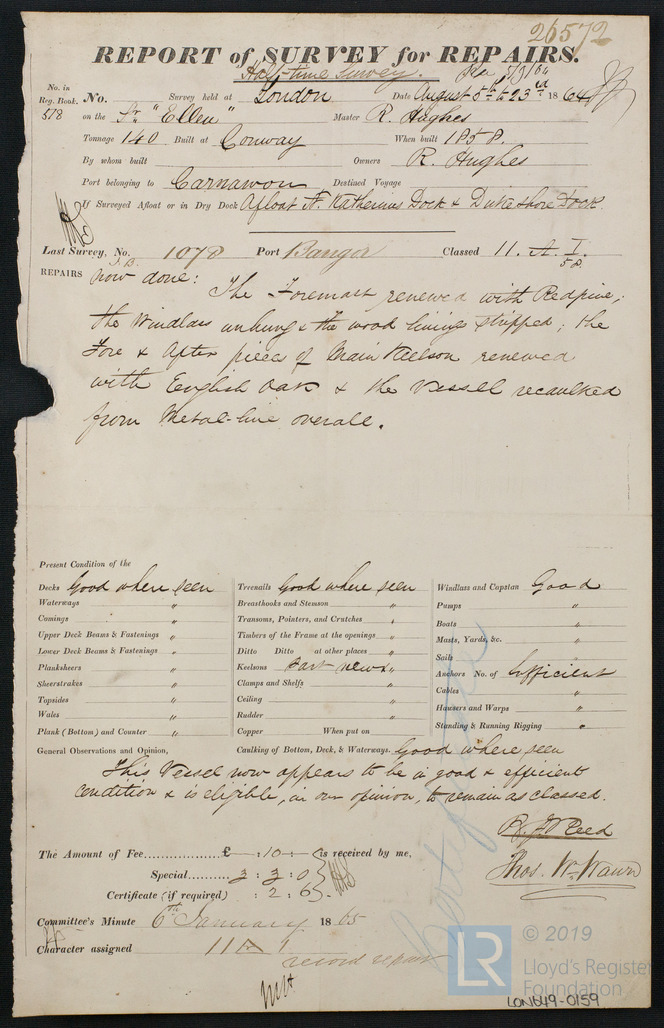 26572
REPORT of SURVEY for REPAIRS.
Half-time Survey.
No. in Reg. Book. No. Survey held at London Date August 5th & 23rd 1864
578 on the Sr. "Ellen" Master R. Hughes
Tonnage 140 Built at Conway When built 1858.
By whom built Owners R. Hughes
Port belonging to Carnarvon Destined Voyage
If Surveyed Afloat or in Dry Dock Afloat St. Katherines Dock & Duke Shore Dock.
Last Survey, No. 1078 Port Bangor Classed 11. A. 1. 58.
REPAIRS now done:
The Foremast renewed with Redpine;
the Windlass unhung & the wood lining stripped; the
Fore & After pieces of Main Keelson renewed
with English Oak & the Vessel recaulked
from Metal-line overall.
Present Condition of the
Decks Good where seen Treenails Good where seen Windlass and Capstan Good
Waterways " Breasthooks and Stemson " Pumps "
Comings " Transoms, Pointers, and Crutches " Boats "
Upper Deck Beams & Fastenings " Timbers of the Frame at the openings " Masts, Yards, &c. "
Lower Deck Beams & Fastenings " Ditto Ditto at other places " Sails "
Planksheers " Keelsons Part new & " Anchors No. of Sufficient
Sheerstrakes " Clamps and Shelfs " Cables "
Topsides " Ceiling " Hawsers and Warps "
Wales " Rudder " Standing & Running Rigging "
Plank (Bottom) and Counter " Copper When put on
General Observations and Opinion, Caulking of Bottom, Deck, & Waterways. Good where seen
This Vessel now appears to be in good & efficient
condition & is eligible, in our opinion, to remain as classed.
The Amount of Fee................£ — 10 : — is received by me,
Special.......... 3 : 3 : 0
Certificate (if required) : 2 . 6
Thos. Wm. Wawn
Committee's Minute 6th January 1865
Character assigned 11 A 1
record repairs
© 2019
LR Lloyd's Register
Foundation
LON649-0159